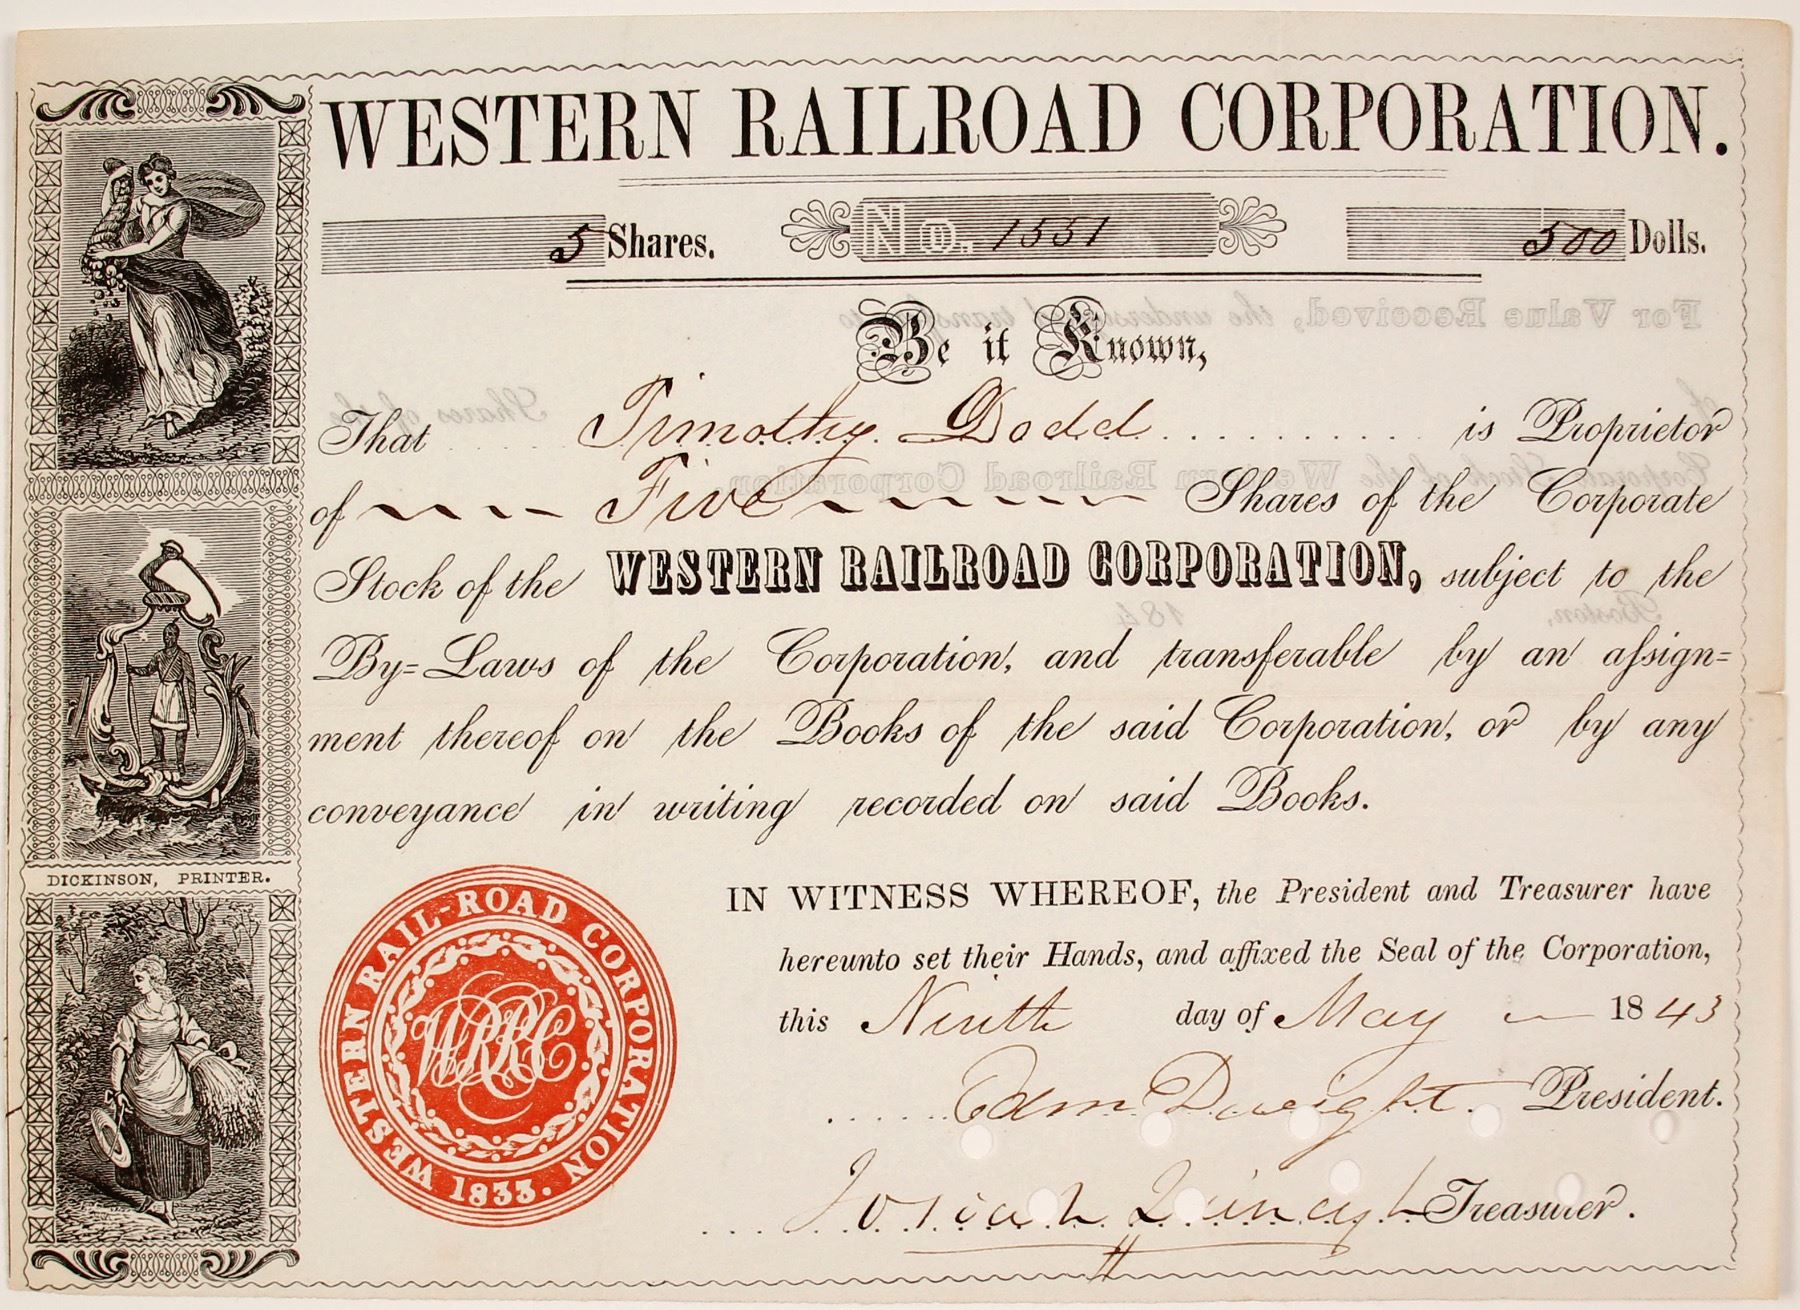 WESTERN RAILROAD CORPORATION.
5 Shares. No. 1551 500 Dolls.
Be it Known,
That Timothy Dodd is Proprietor
of Five Shares of the Corporate
Stock of the WESTERN RAILROAD CORPORATION, subject to the
By=Laws of the Corporation, and transferable by an assign=
ment thereof on the Books of the said Corporation, or by any
conveyance in writing recorded on said Books.
DICKINSON, PRINTER.
IN WITNESS WHEREOF, the President and Treasurer have
hereunto set their Hands, and affixed the Seal of the Corporation,
this Ninth day of May 1843
Edm Dwight President.
Josiah Quincy Jr Treasurer.
WESTERN RAIL-ROAD CORPORATION
WRRC
1833.
For Value Received, the undersigned transfer to
of Shares of the
Corporate Stock of the Western Railroad Corporation.
Boston, 184